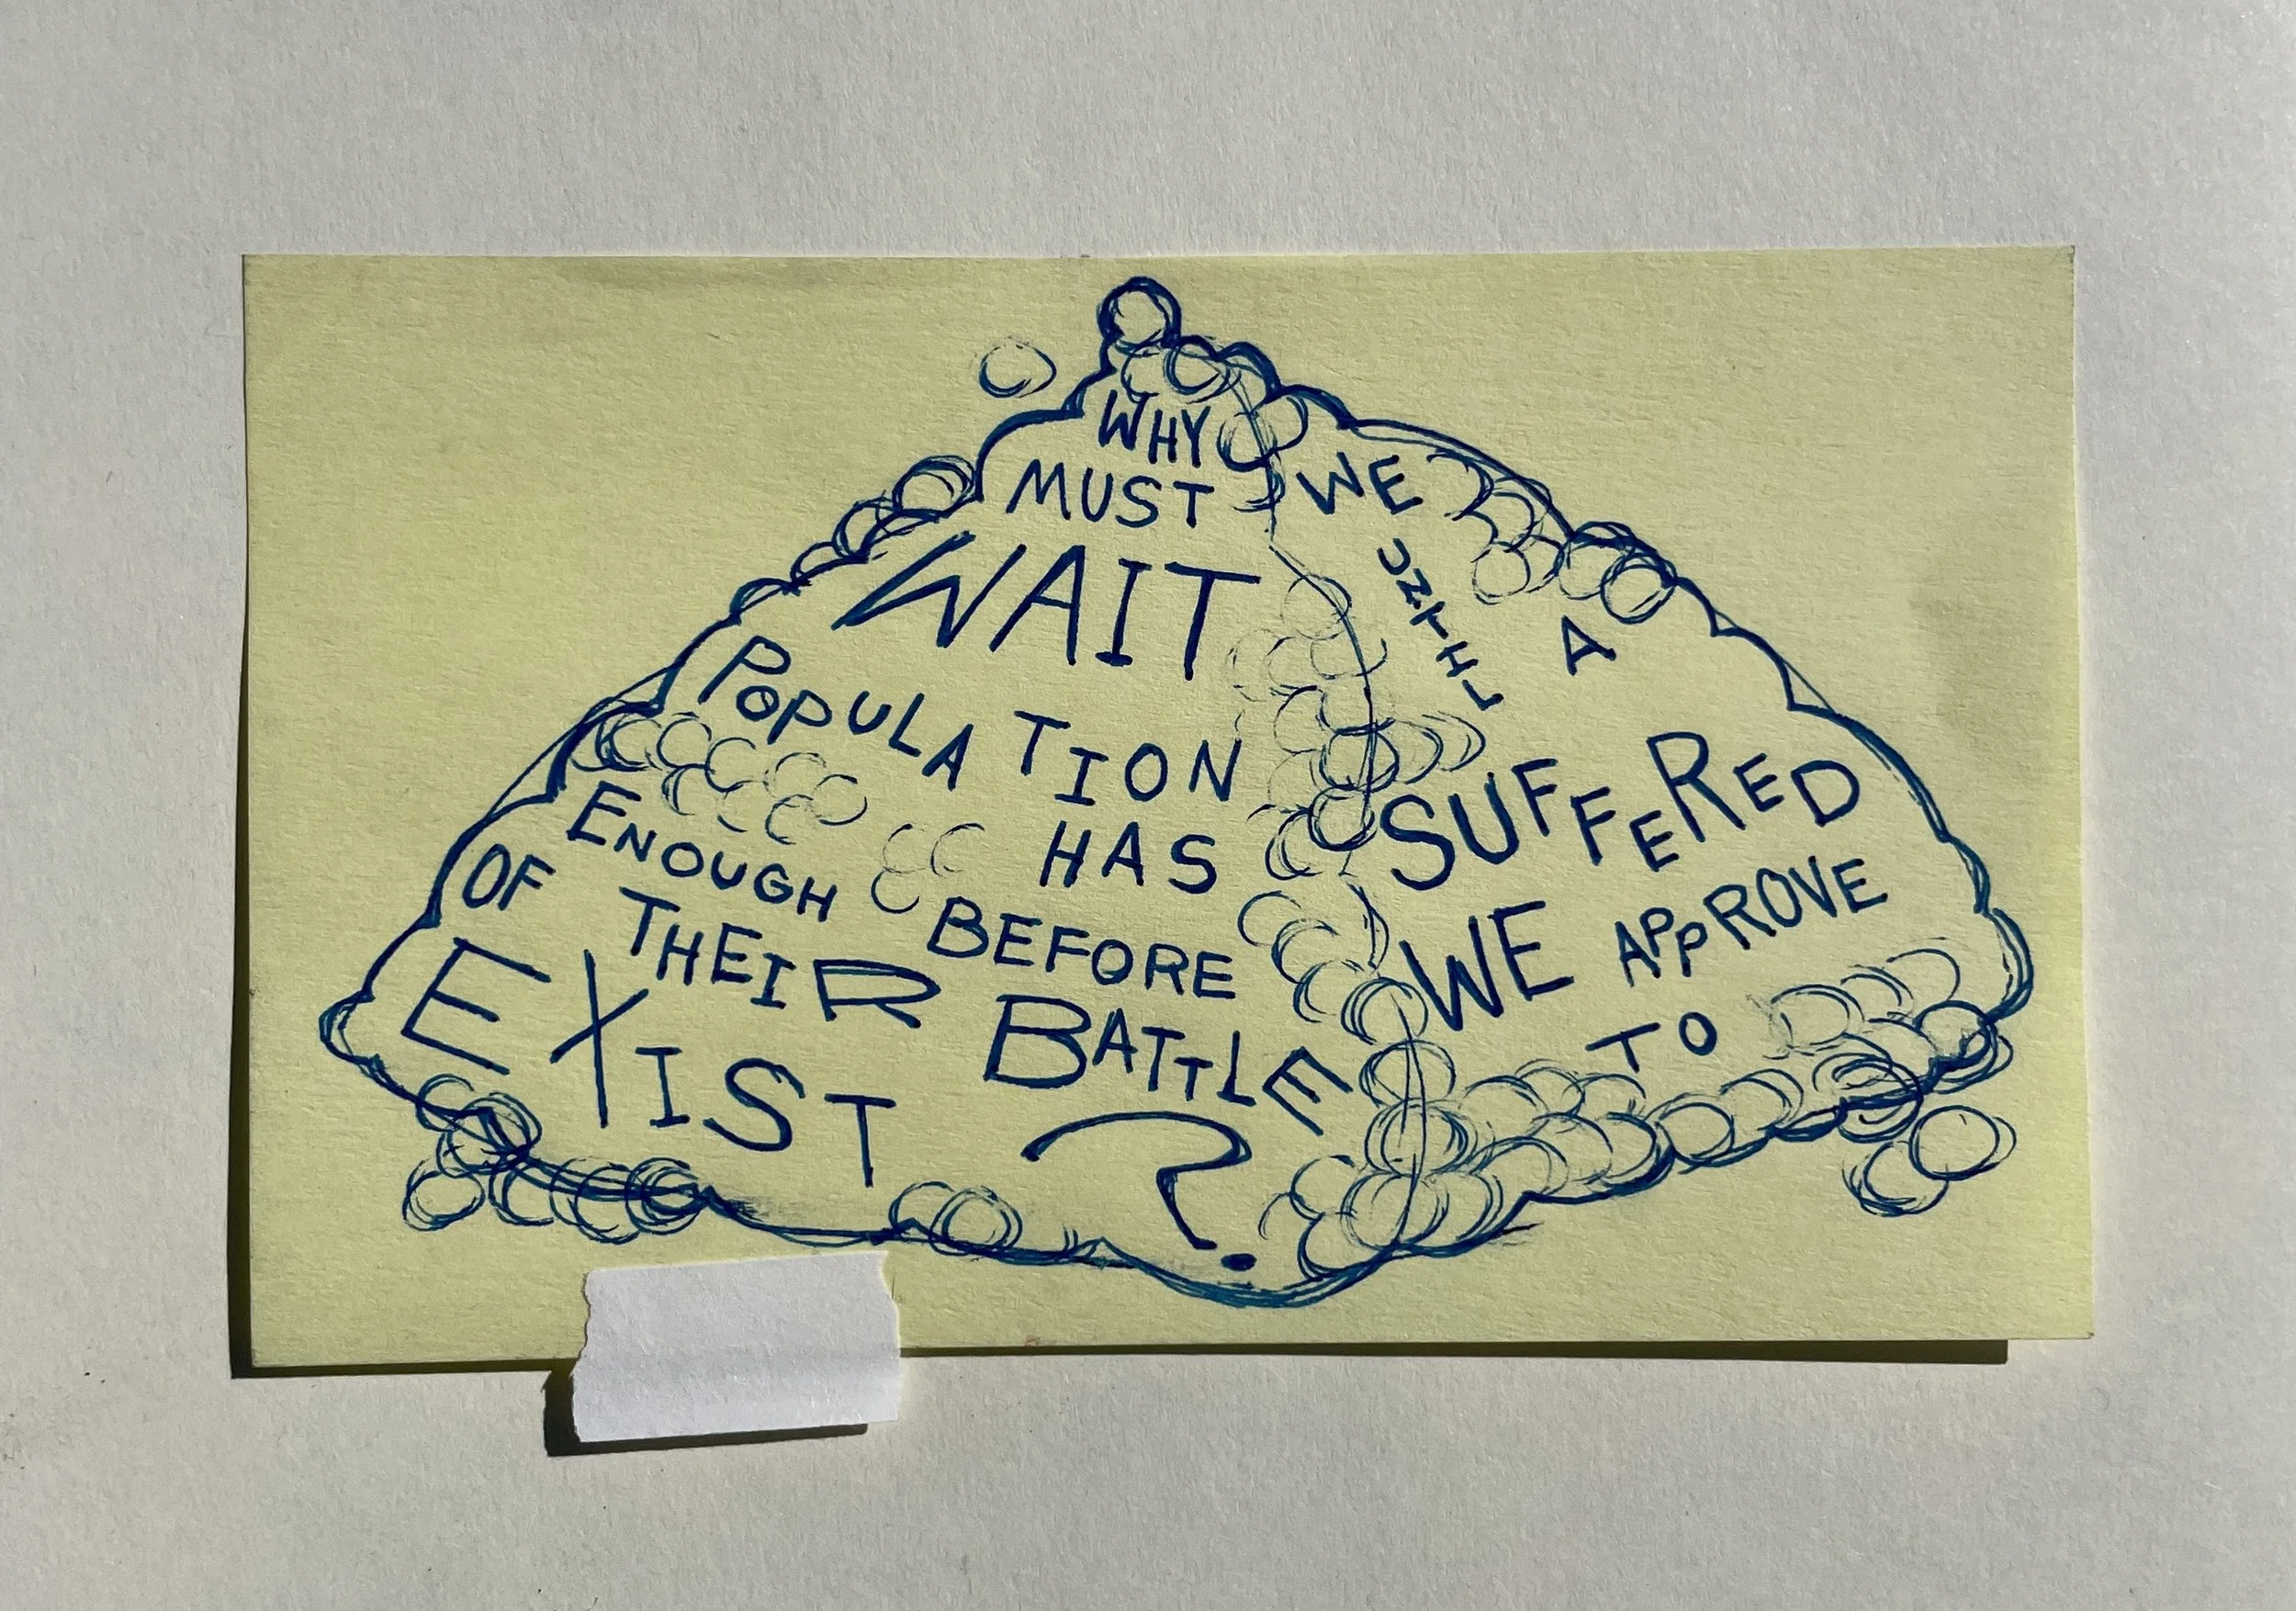 WHY
MUST WE
WAIT UNTIL A
POPULATION
HAS SUFFERED
ENOUGH BEFORE WE APPROVE
OF THEIR BATTLE TO
EXIST ?